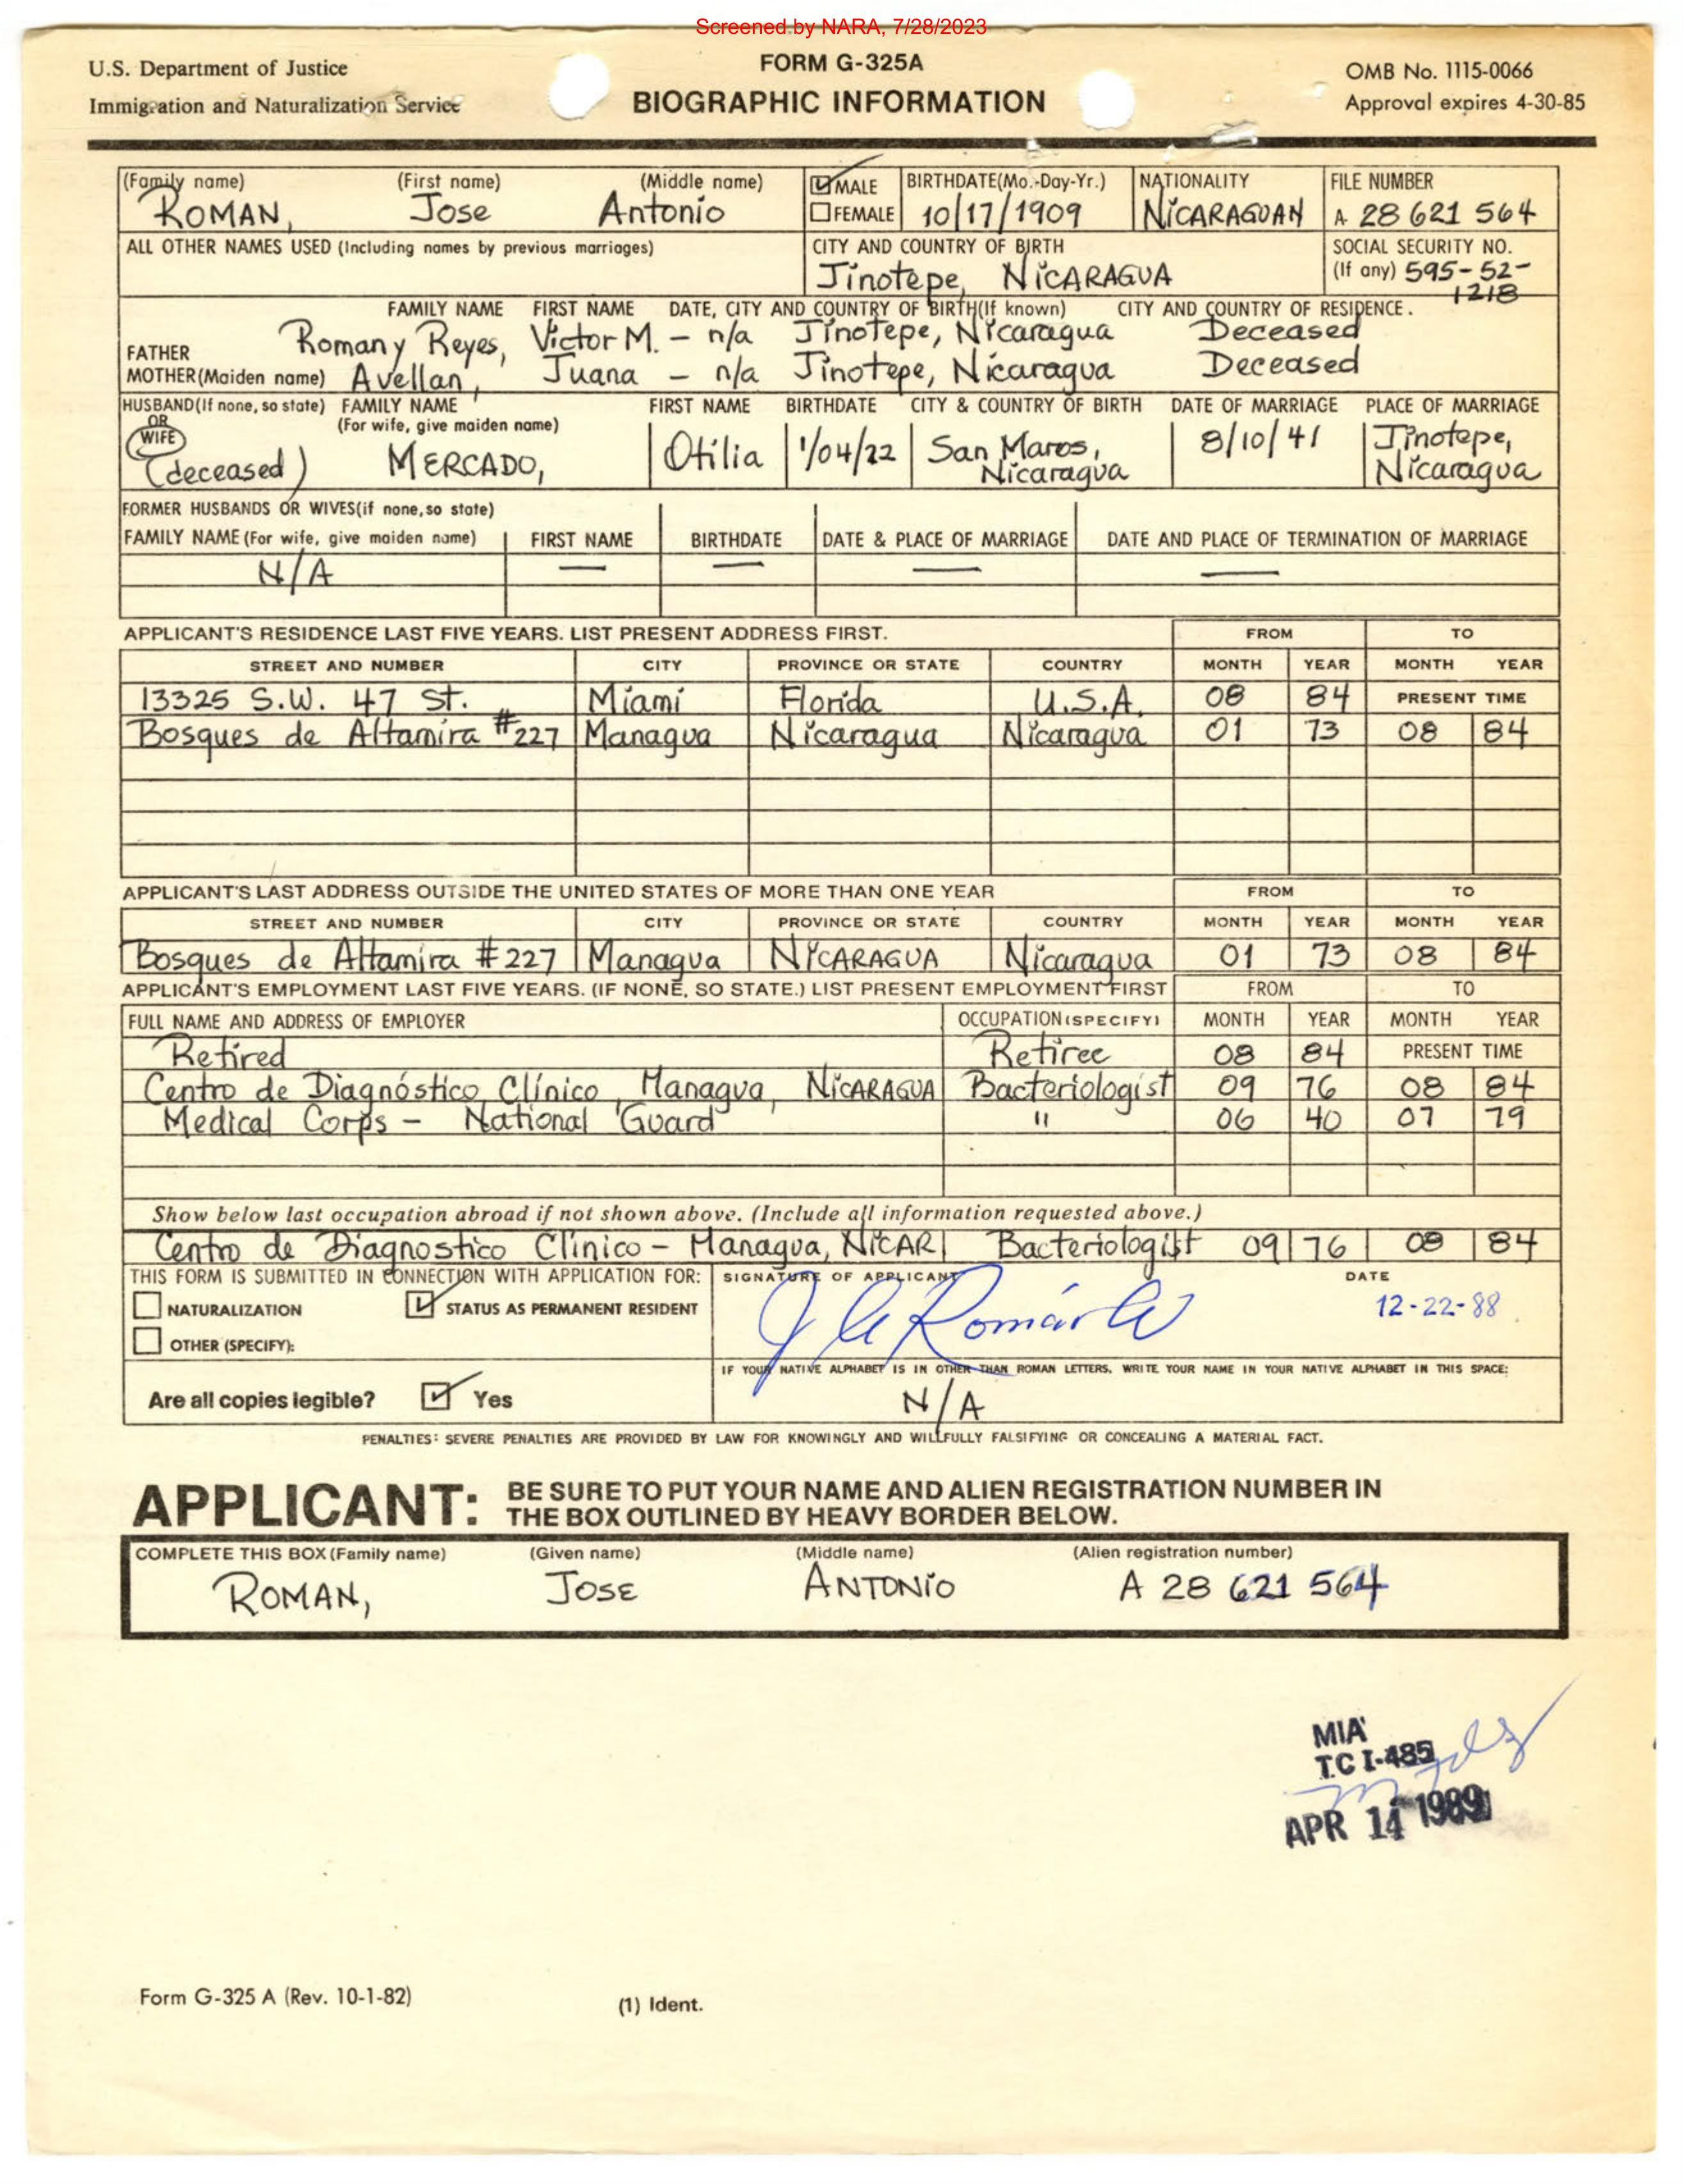 Screened by NARA, 7/28/2023
U.S. Department of Justice
Immigration and Naturalization Service
FORM G-325A
BIOGRAPHIC INFORMATION
OMB No. 1115-0066
Approval expires 4-30-85
(Family name) (First name) (Middle name) MALE BIRTHDATE(Mo.-Day-Yr.) NATIONALITY FILE NUMBER
ROMAN, Jose Antonio FEMALE 10/17/1909 NICARAGUAN A 28 621 564
ALL OTHER NAMES USED (Including names by previous marriages) CITY AND COUNTRY OF BIRTH SOCIAL SECURITY NO.
Jinotepe, NICARAGUA (If any) 595-52-
1218
FAMILY NAME FIRST NAME DATE, CITY AND COUNTRY OF BIRTH(If known) CITY AND COUNTRY OF RESIDENCE.
FATHER Roman y Reyes, Victor M. - n/a Jinotepe, Nicaragua Deceased
MOTHER(Maiden name) Avellan, Juana - n/a Jinotepe, Nicaragua Deceased
HUSBAND(If none, so state) FAMILY NAME FIRST NAME BIRTHDATE CITY & COUNTRY OF BIRTH DATE OF MARRIAGE PLACE OF MARRIAGE
OR (For wife, give maiden name)
WIFE
(deceased) MERCADO, Otilia 1/04/22 San Maros, 8/10/41 Jinotepe,
Nicaragua Nicaragua
FORMER HUSBANDS OR WIVES(if none, so state)
FAMILY NAME (For wife, give maiden name) FIRST NAME BIRTHDATE DATE & PLACE OF MARRIAGE DATE AND PLACE OF TERMINATION OF MARRIAGE
N/A — — — —
APPLICANT'S RESIDENCE LAST FIVE YEARS. LIST PRESENT ADDRESS FIRST. FROM TO
STREET AND NUMBER CITY PROVINCE OR STATE COUNTRY MONTH YEAR MONTH YEAR
13325 S.W. 47 St. Miami Florida U.S.A. 08 84 PRESENT TIME
Bosques de Altamira #227 Managua Nicaragua Nicaragua 01 73 08 84
APPLICANT'S LAST ADDRESS OUTSIDE THE UNITED STATES OF MORE THAN ONE YEAR FROM TO
STREET AND NUMBER CITY PROVINCE OR STATE COUNTRY MONTH YEAR MONTH YEAR
Bosques de Altamira #227 Managua NICARAGUA Nicaragua 01 73 08 84
APPLICANT'S EMPLOYMENT LAST FIVE YEARS. (IF NONE, SO STATE.) LIST PRESENT EMPLOYMENT FIRST FROM TO
FULL NAME AND ADDRESS OF EMPLOYER OCCUPATION (SPECIFY) MONTH YEAR MONTH YEAR
Retired Retiree 08 84 PRESENT TIME
Centro de Diagnóstico Clínico, Managua, NICARAGUA Bacteriologist 09 76 08 84
Medical Corps - National Guard " 06 40 07 79
Show below last occupation abroad if not shown above. (Include all information requested above.)
Centro de Diagnostico Clinico - Managua, NICAR Bacteriologist 09 76 08 84
THIS FORM IS SUBMITTED IN CONNECTION WITH APPLICATION FOR: SIGNATURE OF APPLICANT DATE
NATURALIZATION STATUS AS PERMANENT RESIDENT 12-22-88
OTHER (SPECIFY):
IF YOUR NATIVE ALPHABET IS IN OTHER THAN ROMAN LETTERS, WRITE YOUR NAME IN YOUR NATIVE ALPHABET IN THIS SPACE:
Are all copies legible? Yes N/A
PENALTIES: SEVERE PENALTIES ARE PROVIDED BY LAW FOR KNOWINGLY AND WILLFULLY FALSIFYING OR CONCEALING A MATERIAL FACT.
APPLICANT: BE SURE TO PUT YOUR NAME AND ALIEN REGISTRATION NUMBER IN
THE BOX OUTLINED BY HEAVY BORDER BELOW.
COMPLETE THIS BOX (Family name) (Given name) (Middle name) (Alien registration number)
ROMAN, JOSE ANTONIO A 28 621 564
MIA
T.C I-485
APR 14 1989
Form G-325 A (Rev. 10-1-82)
(1) Ident.